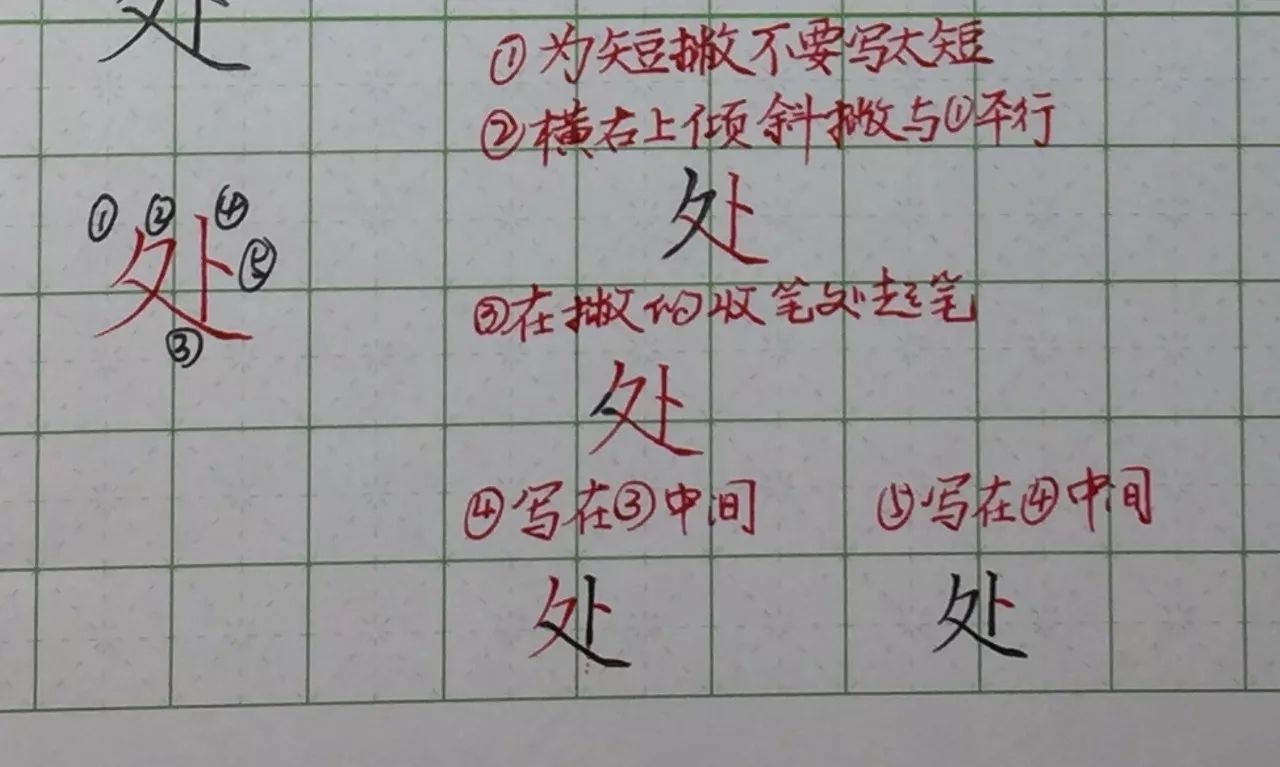 处
①为短撇不要写太短
②横右上倾斜撇与①平行
处
① ② ④
处 ⑤
③
③在撇的收笔处起笔
处
④写在③中间 ⑤写在④中间
处 处